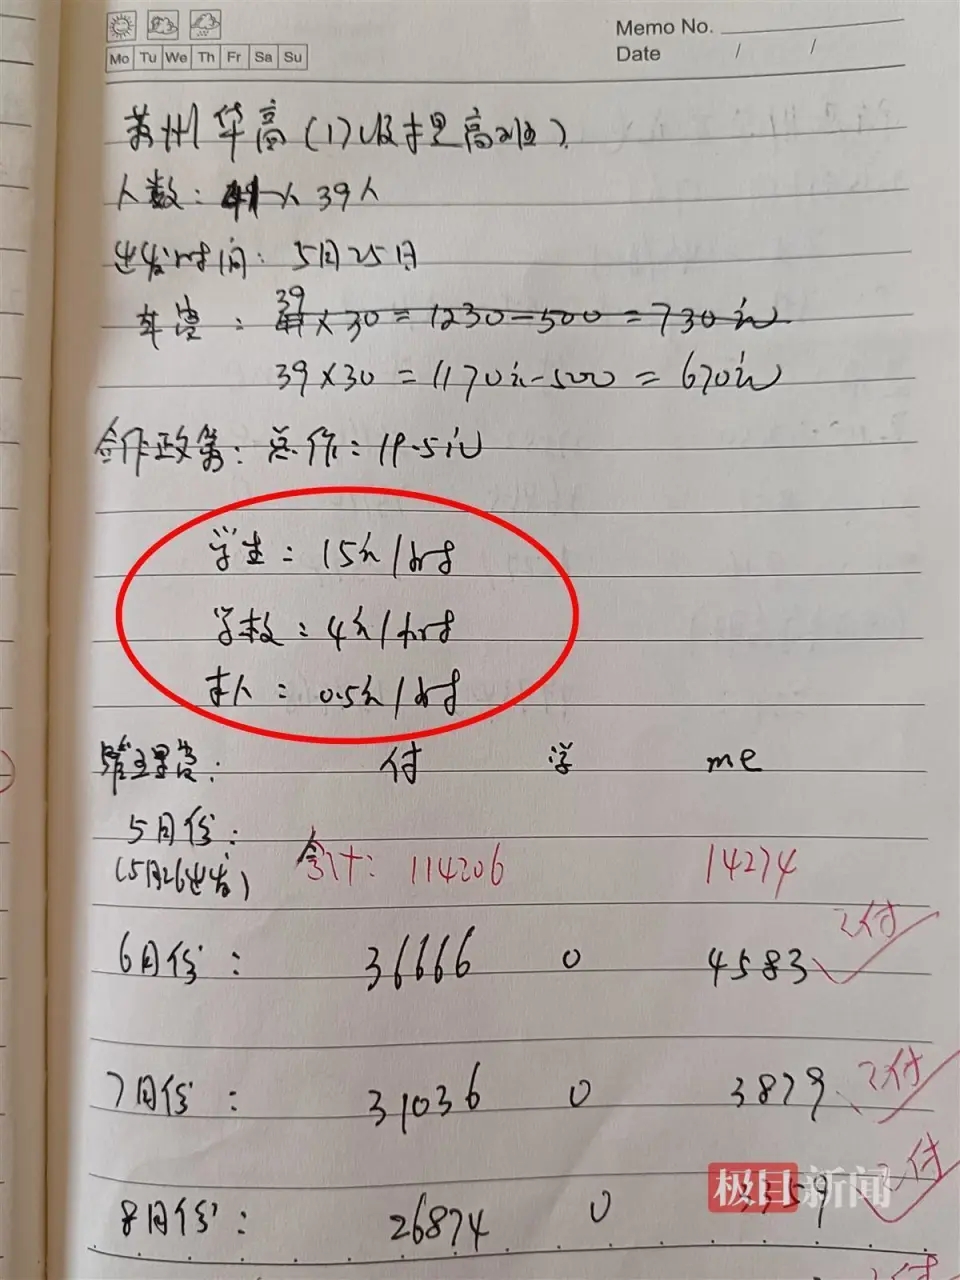 Memo No.
Mo Tu We Th Fr Sa Su
Date / /
苏州华高(17级提高班)
人数: 41人 39人
出发时间: 5月25日
39
车费: 41×30=1230-500=730元
39×30=1170元-500=670元
合作政策: 总价: 19.5元
学生: 15元/时
学校: 4元/时
本人: 0.5元/时
管理费: 付 学 me
5月份:
(5月26出发) 合计: 114206 14274
已付
6月份: 36666 0 4583
7月份: 31036 0 3879 已付
极目新闻 已付
8月份: 26874 0 3359